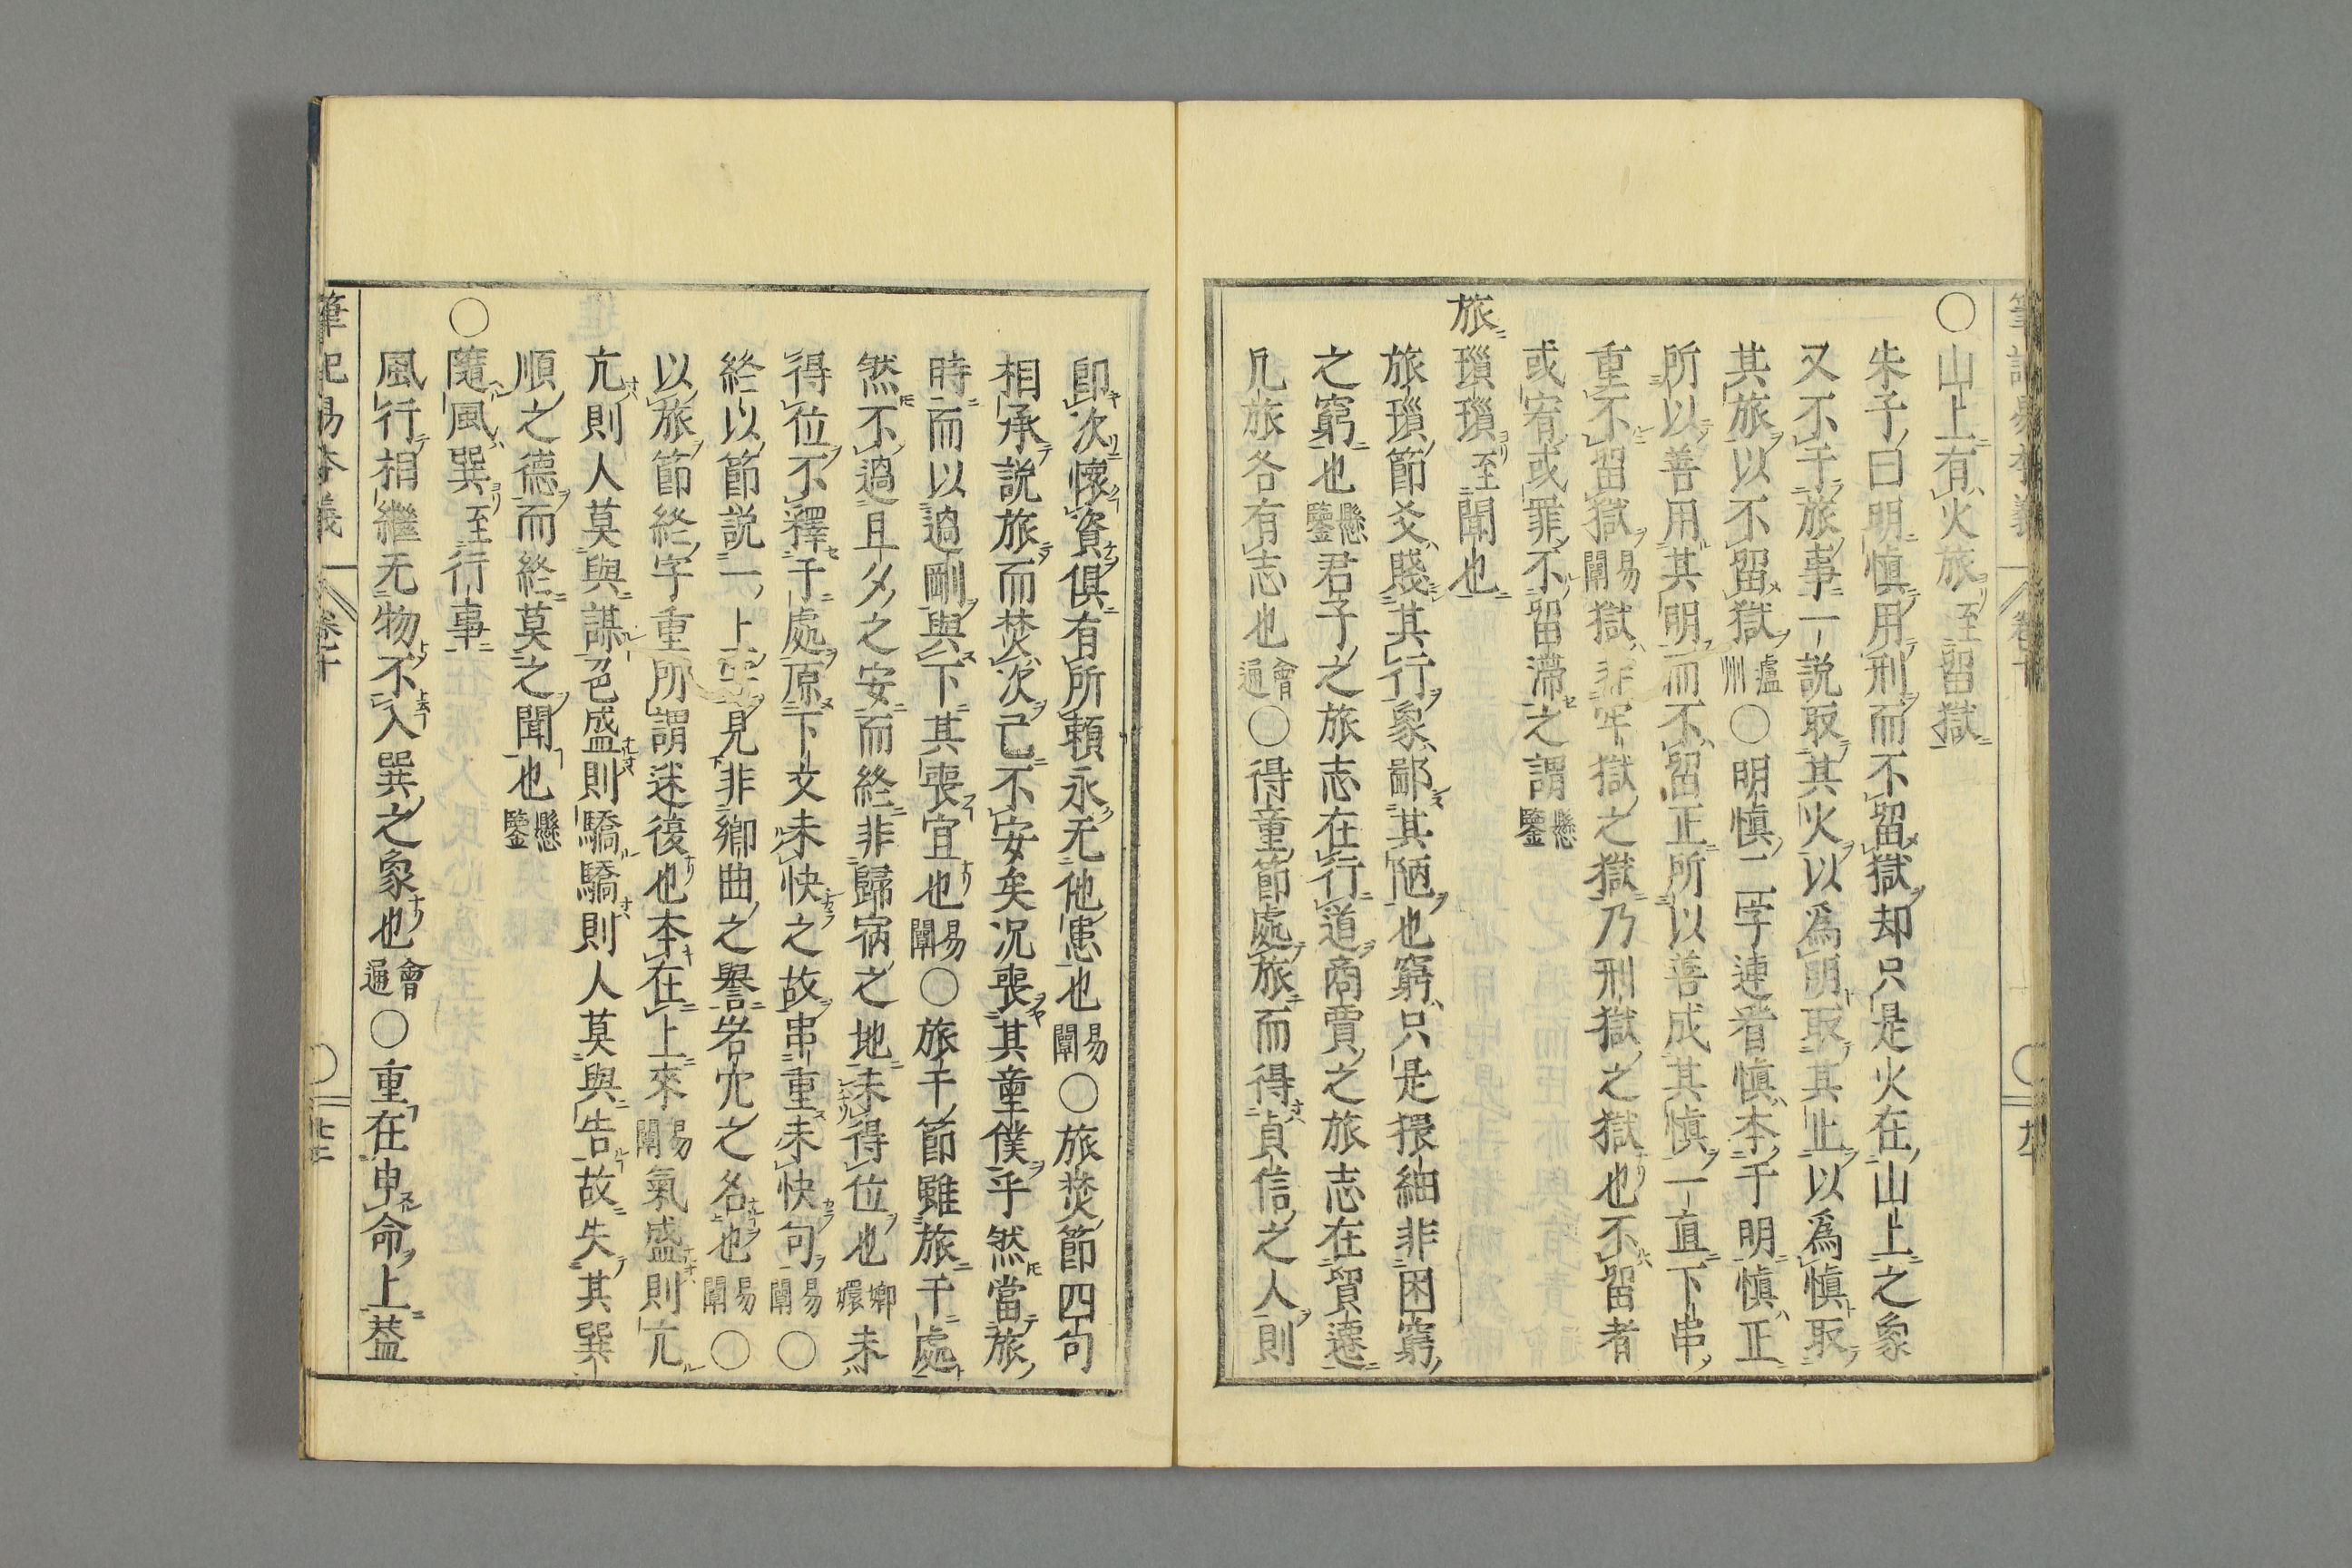 筆記易本義 卷十
○山上有火旅至留獄
朱子曰明慎用刑而不留獄却只是火在山上之象
又不干旅事一說取其火以爲明取其止以爲慎取
其旅以不留獄瀘州○明慎二字連看慎本于明明慎正
所以善用其明而不留正所以善成其慎一直下串
重不留獄易闡獄非牢獄之獄乃刑獄之獄也不留者
或宥或罪不留滯之謂懸鑒
旅瑣瑣至聞也
旅瑣節爻賤其行象鄙其陋也窮只是猥細非困窮
之窮也懸鑒君子之旅志在行道商賈之旅志在貿遷
凡旅各有志也會通○得童節處旅而得貞信之人則
卽次懷資俱有所賴永无他患也易闡○旅焚節四句
相承說旅而焚次已不安矣况喪其童僕乎然當旅
時而以過剛與下其喪宜也易闡○旅于節雖旅于處
然不過且夕之安而終非歸宿之地未得位也嫏嬛未
得位不釋于處原下文未快之故串重未快句易闡○
終以節說一上字見非鄉曲之譽岩穴之名也易闡○
以旅節終字重所謂迷復也本在上來易闡氣盛則亢
亢則人莫與謀色盛則驕驕則人莫與告故失其巽
順之德而終莫之聞也懸鑒
○隨風巽至行事
風行相繼无物不入巽之象也會通○重在申命上葢
筆記易本義 卷十